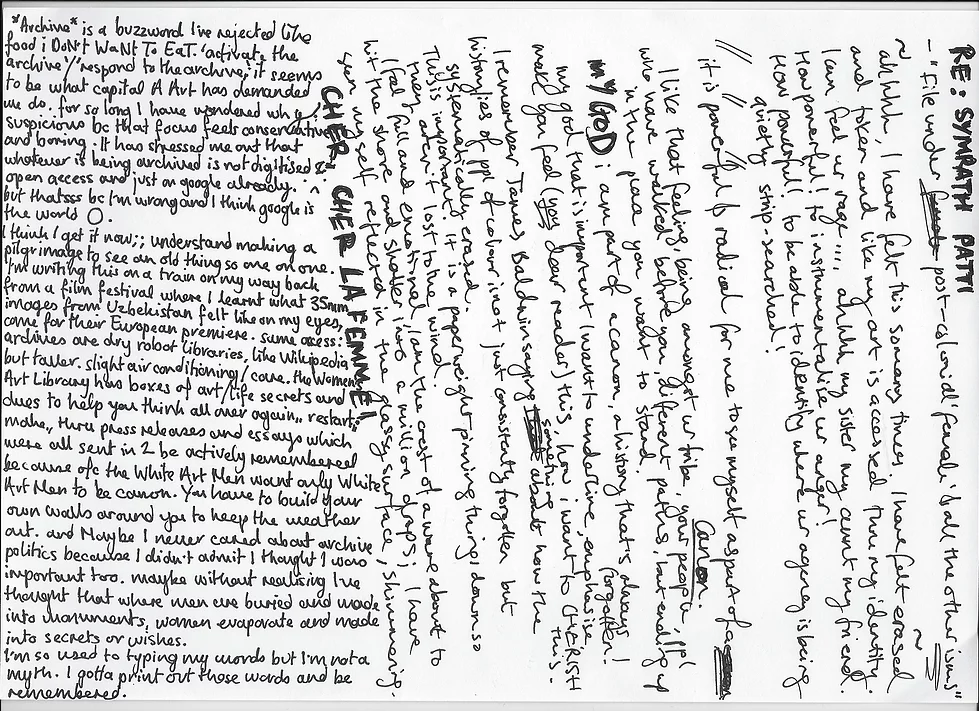 "Archive" is a buzzword I've rejected like
food i DoN't WaNt To EaT. 'activate the
archive'/'respond to the archive', it seems
to be what capital A Art has demanded
we do. for so long I have wondered why,
suspicious bc that focus feels conservative
and boring. It has stressed me out that
whatever is being archived is not digitised &
open access and just on google already.
but thatsss bc I'm wrong and I think google is
the world O.
I think I get it now;; understand making a
pilgrimage to see an old thing so one on one.
I'm writing this on a train on my way back
from a film festival where I learnt what 35mm
images from Uzbekistan felt like on my eyes,
come for their European premiere. same access:
archives are dry robot libraries, like Wikipedia
but taller. slight air conditioning / cave. the Womens
Art Library has boxes of art/life secrets and
clues to help you think all over again,, restart,,
make,, thru press releases and essays which
were all sent in 2 be actively remembered
because ofc the White Art Men want only White
Art Men to be canon. You have to build your
own walls around you to keep the weather
out. and Maybe I never cared about archive
politics because I didn't admit I thought I was
important too. maybe without realising I've
thought that where men are buried and made
into monuments, women evaporate and made
into secrets or wishes.
I'm so used to typing my words but I'm not a
myth. I gotta print out those words and be
remembered.
RE: SYMRATH PATTI
- "File under post-colonial' female' & all the other isms"
~ ahhhh, I have felt this so many times, I have felt erased
and token and like my art is accessed thru my identity.
I can feel ur rage!!!! ahhhh my sister my aunt my friend.
How powerful! to instrumentalise ur anger!
How powerful! to be able to identify where ur agency is being
quietly strip-searched!
// // //
it is powerful & radical for me to see myself as part of a
Canon.
I like that feeling, being amongst ur tribe, your people, ppl
who have walked before you, different paths, but ending up
in the place you want to stand.
MY GOD i am part of a canon, a history that's always
forgotten!
my god that is important I want to underline, emphasise,
make you feel (you, dear reader) this how i want to CHERISH
this.
I remember James Baldwin saying something about how the
histories of ppl of colour r not just consistently forgotten but
systematically erased.
This is important. it is a paperweight pinning things down so
they aren't lost to the wind.
I feel full and emotional, I am the crest of a wave about to
hit the shore and shatter into a million drops; I have
seen my self reflected in the glassy surface, shimmering.
CHER CHER LA FEMME!